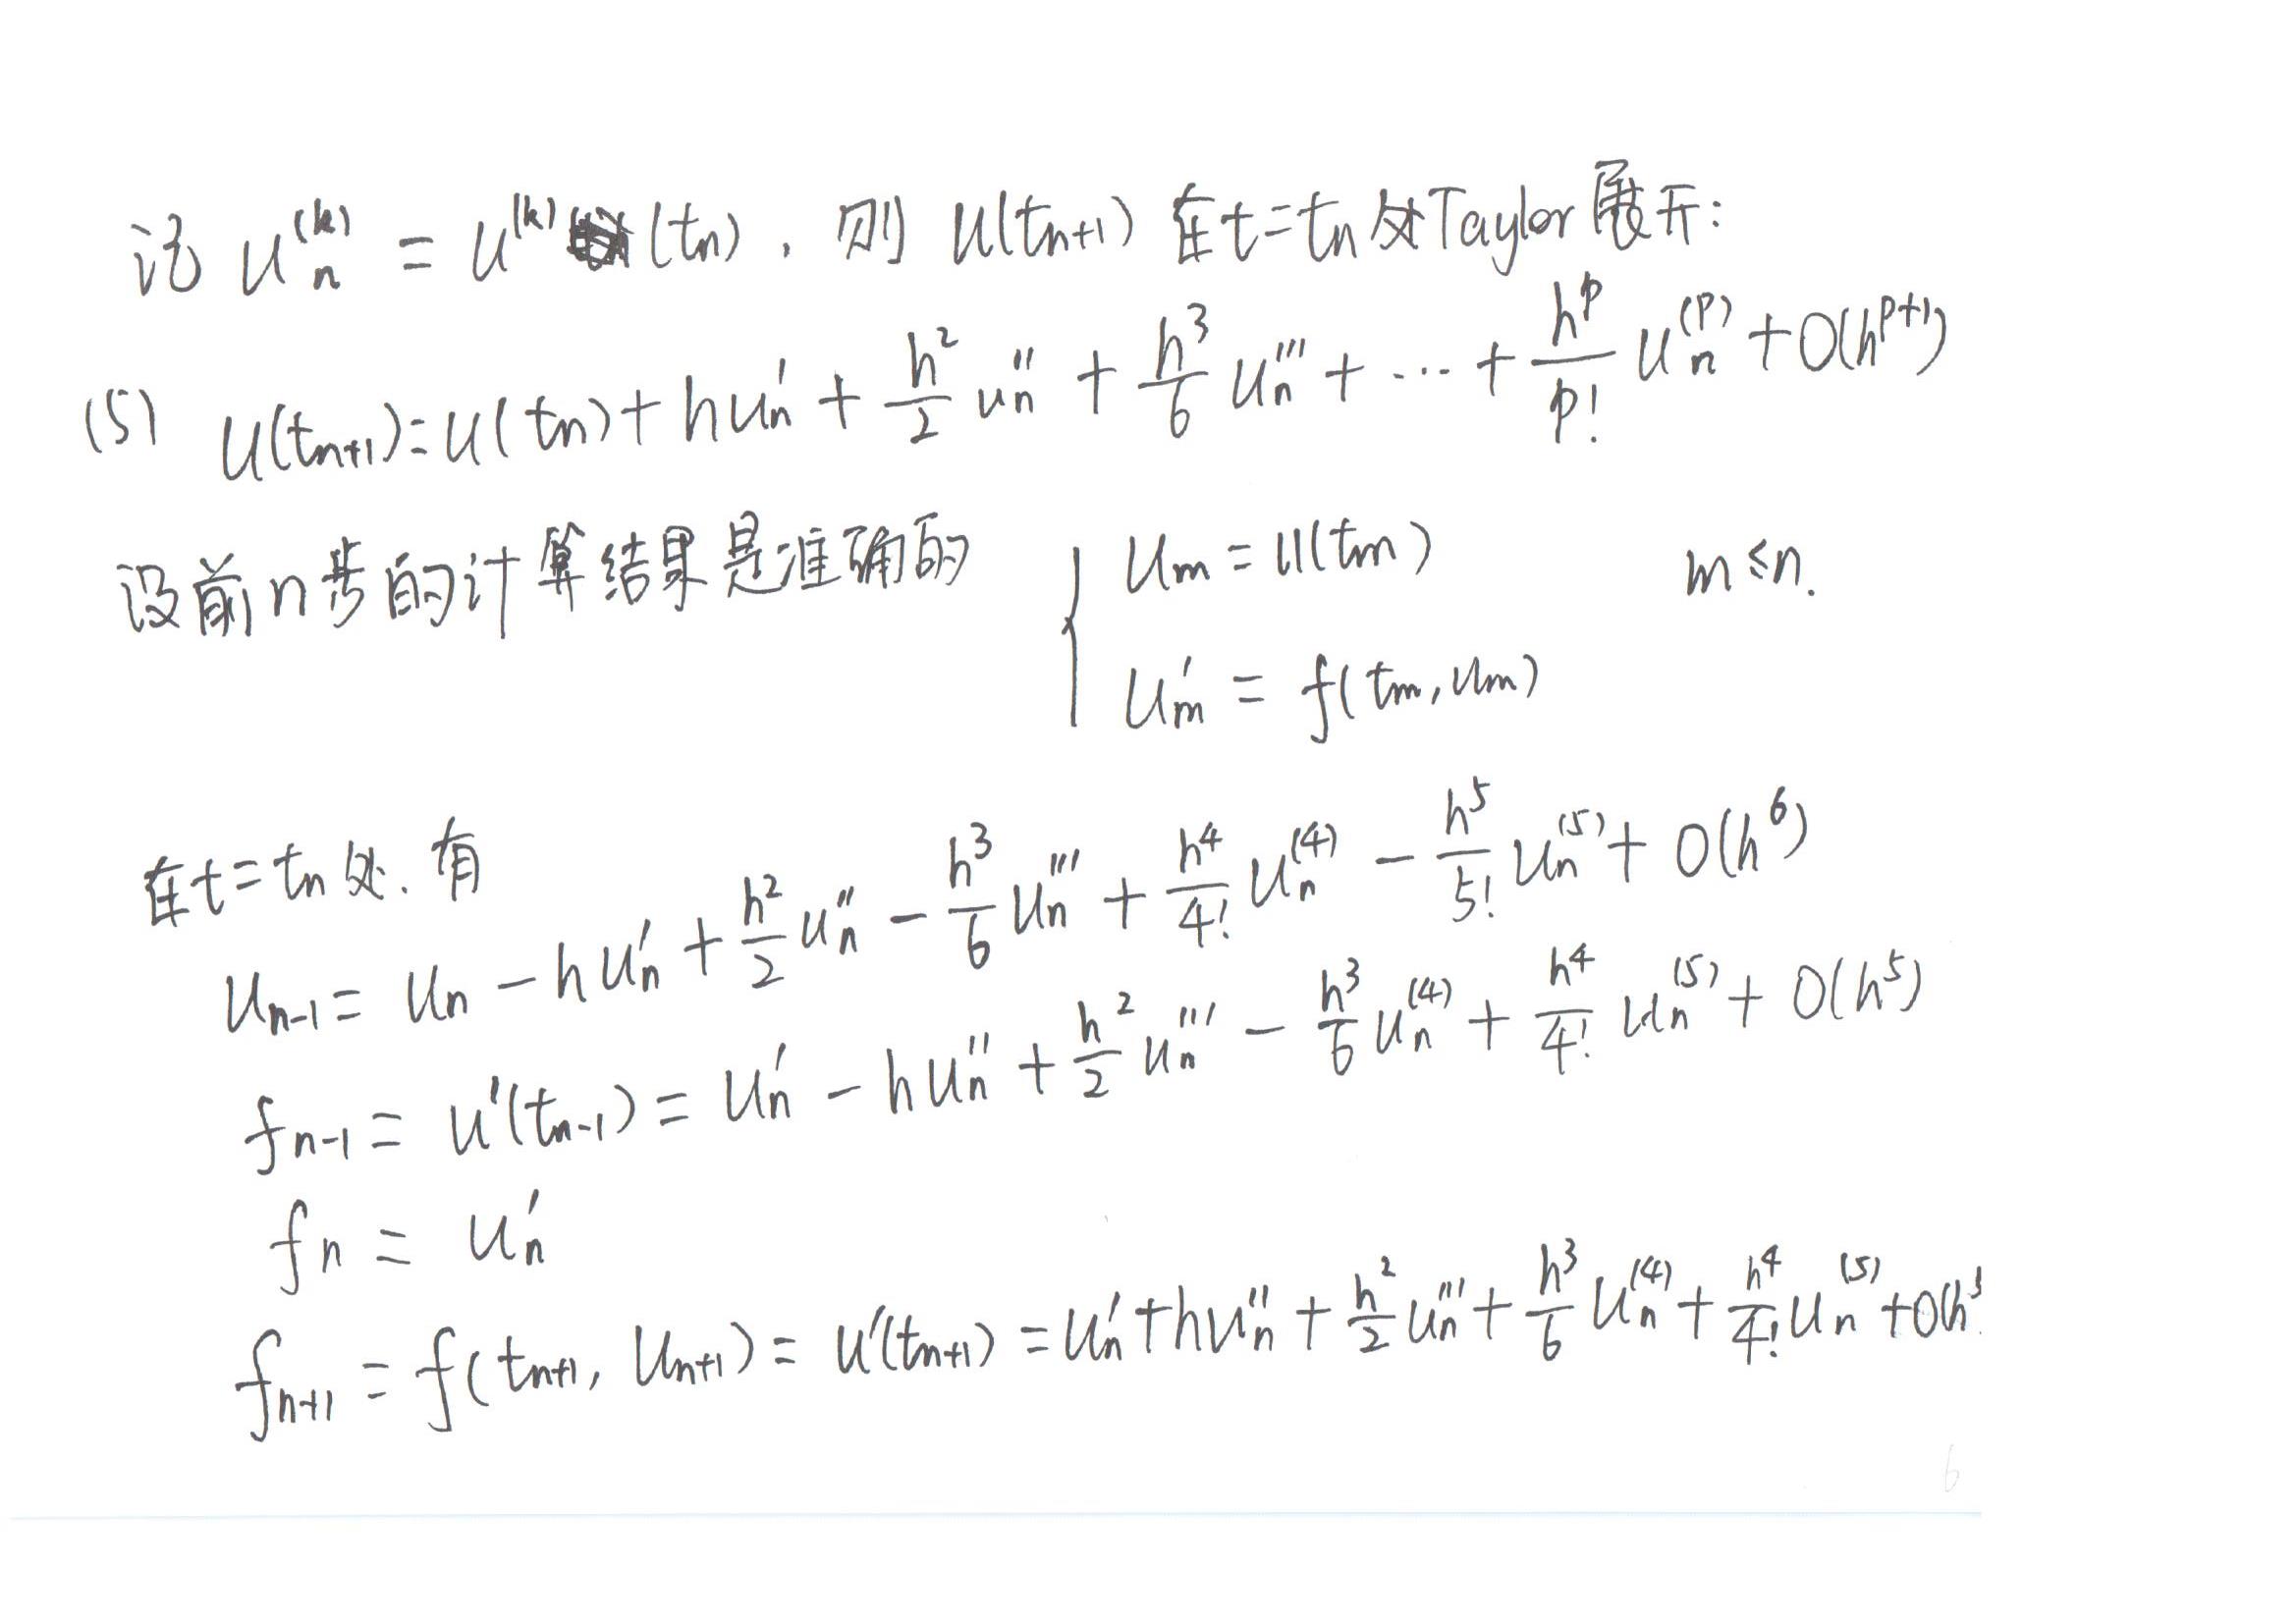 记 $u_n^{(k)} = u^{(k)}(t_n)$, 则 $u(t_{n+1})$ 在$t=t_n$处Taylor展开:
(5) $u(t_{n+1}) = u(t_n) + hu_n' + \frac{h^2}{2}u_n'' + \frac{h^3}{6}u_n''' + \cdots + \frac{h^p}{p!}u_n^{(p)} + O(h^{p+1})$
设前n步的计算结果是准确的 $\begin{cases} u_m = u(t_m) \\ u_m' = f(t_m, u_m) \end{cases}$ $m \le n.$
在$t=t_n$处, 有
$u_{n-1} = u_n - hu_n' + \frac{h^2}{2}u_n'' - \frac{h^3}{6}u_n''' + \frac{h^4}{4!}u_n^{(4)} - \frac{h^5}{5!}u_n^{(5)} + O(h^6)$
$f_{n-1} = u'(t_{n-1}) = u_n' - hu_n'' + \frac{h^2}{2}u_n''' - \frac{h^3}{6}u_n^{(4)} + \frac{h^4}{4!}u_n^{(5)} + O(h^5)$
$f_n = u_n'$
$f_{n+1} = f(t_{n+1}, u_{n+1}) = u'(t_{n+1}) = u_n' + hu_n'' + \frac{h^2}{2}u_n''' + \frac{h^3}{6}u_n^{(4)} + \frac{h^4}{4!}u_n^{(5)} + O(h$
6